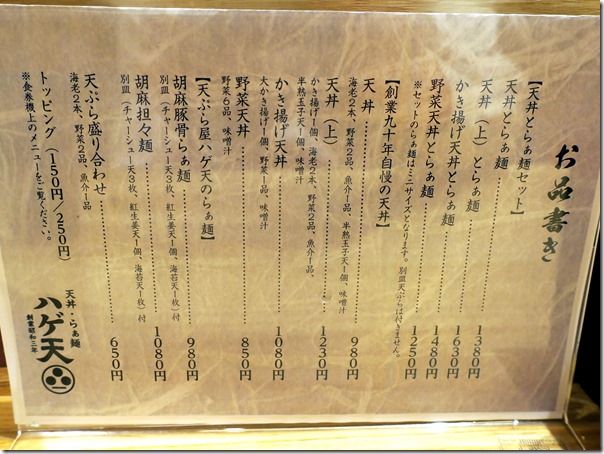 お品書き
【天丼とらぁ麺セット】
天丼とらぁ麺 1380円
天丼（上）とらぁ麺 1630円
かき揚げ天丼とらぁ麺 1480円
野菜天丼とらぁ麺 1250円
※セットのらぁ麺はミニサイズとなります。別皿天ぷらは付きません。
【創業九十年自慢の天丼】
天丼 980円
海老2本、野菜2品、魚介1品、半熟玉子天1個、味噌汁
天丼（上） 1230円
かき揚げ1個、海老2本、野菜2品、魚介1品、
半熟玉子天1個、味噌汁
かき揚げ天丼 1080円
大かき揚げ1個、野菜1品、味噌汁
野菜天丼 850円
野菜6品、味噌汁
【天ぷら屋ハゲ天のらぁ麺】
胡麻豚骨らぁ麺 980円
別皿（チャーシュー天3枚、紅生姜天1個、海苔天1枚）付
胡麻担々麺 1080円
別皿（チャーシュー天3枚、紅生姜天1個、海苔天1枚）付
天ぷら盛り合わせ 650円
海老2本、野菜2品、魚介1品
トッピング（150円／250円）
※食券機上のメニューをご覧ください。
天丼・らぁ麺
ハゲ天
創業昭和三年